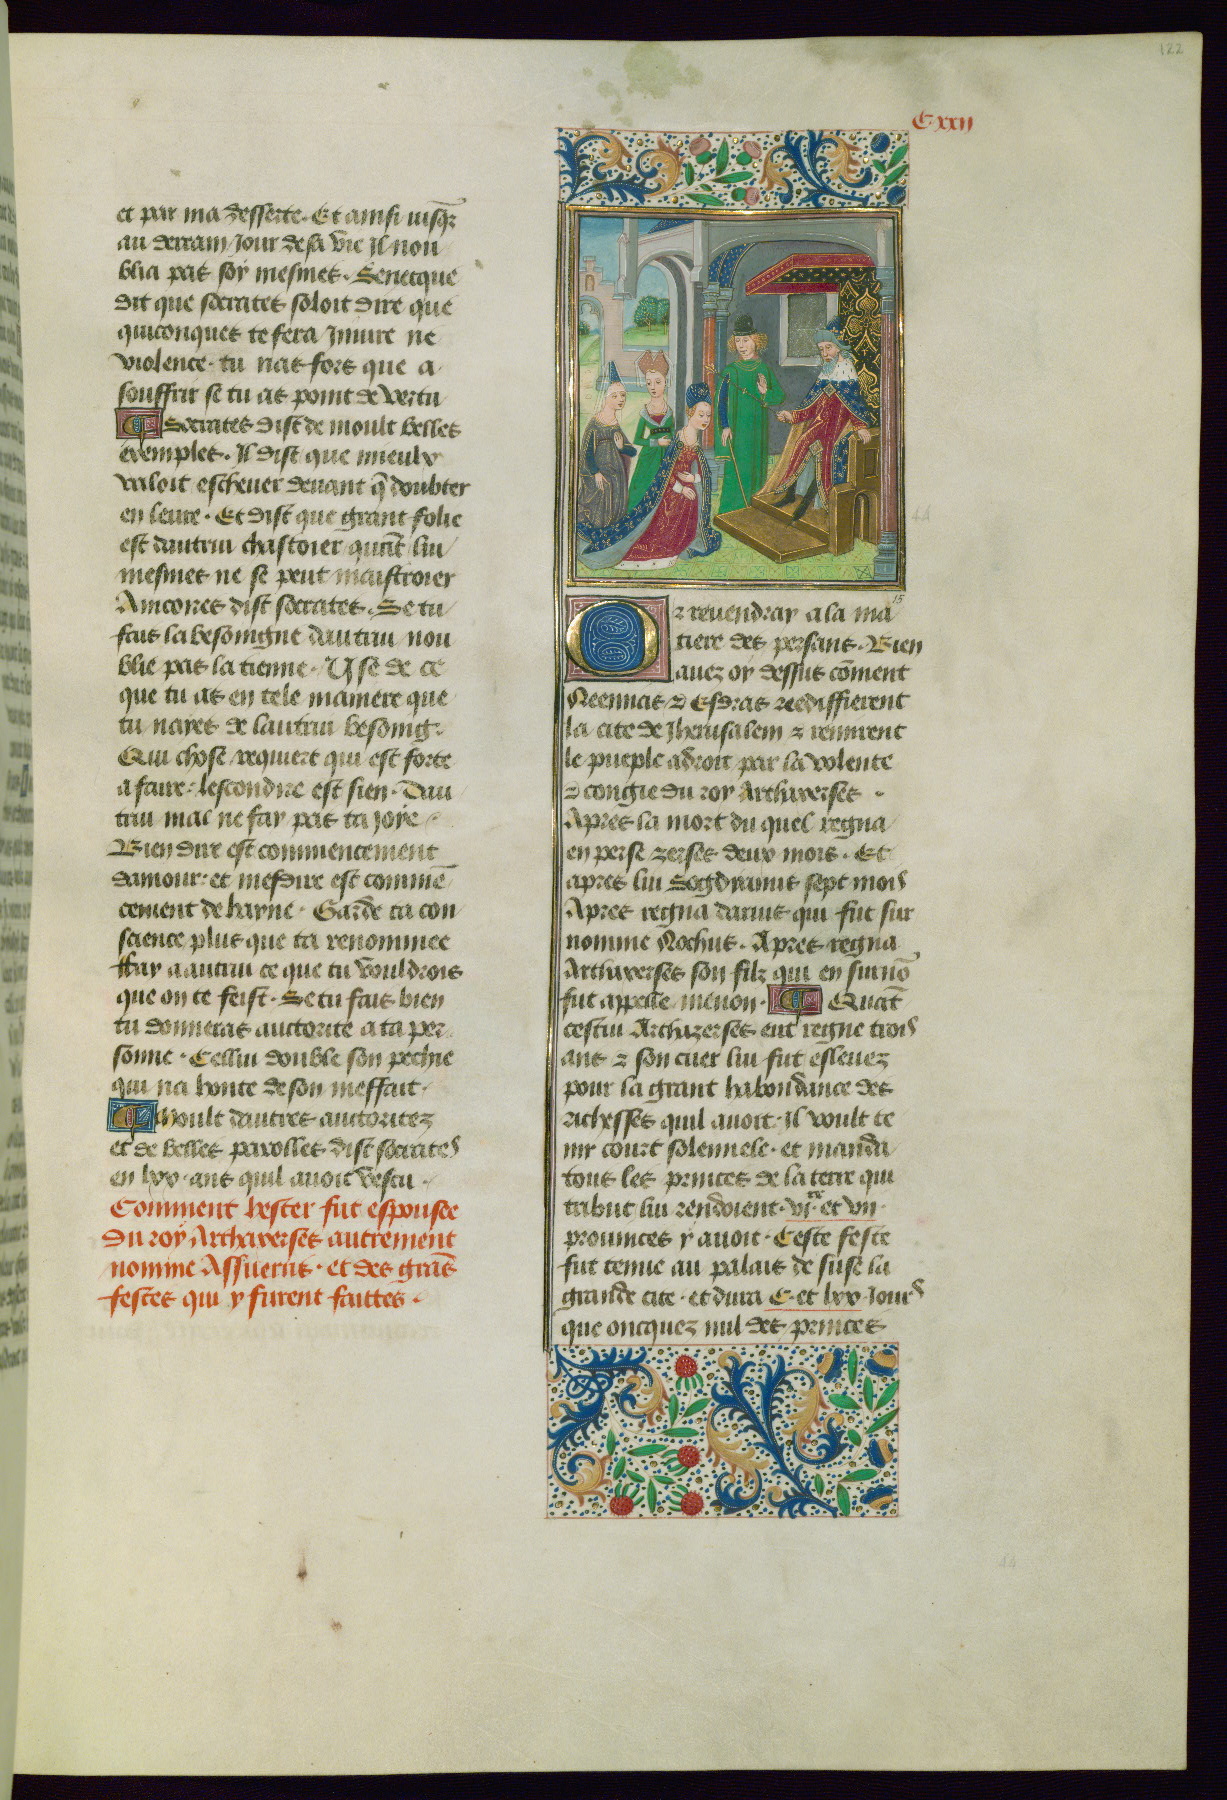 122
C xxii
et par ma desserte. Et ainsi iusq̄z
au derrain Jour de sa vie Il nou
blia pas soy mesmes. Senecque
dit que socrates soloit dire que
quiconques te fera Iniure ne
violence. tu nas fors que a
souffrir se tu as point de vertu
Socrates dist de moult belles
exemples. Il dist que mieulx
valoit eschever devant q̄ doubter
en leure. Et dist que grant folie
est dautrui chastoier quāt lui
mesmes ne se peut maistroier
Aincores dist socrates. Se tu
fais la besoingne dautrui nou
blie pas la tienne. Use de ce
que tu as en tele maniere que
tu nayes de lautrui besoing.
Qui chose requiert qui est forte
a faire. lescondire est sien. Dau
trui mal ne fay pas ta joye.
Bien dire est commencement
damour. et mesdire est commē
cement de hayne. Garde ta con
science plus que ta renommee
ffay a autrui ce que tu vouldrois
que on te feist. Se tu fais bien
tu donneras auctorite a ta per
sonne. Cellui double son pechie
qui na honte de son meffait.
Moult dautres auctoritez
et de belles parolles dist socrates
en lxx. ans quil avoit vescu.
Comment hester fut espousee
du roy Arthaxerses autrement
nomme Assuerus. et des grās
festes qui y furent faittes.
Or revendray a la ma
tiere des persans. Bien
avez oy dessus cōment
Neemias et Esdras reediffierent
la cite de Jherusalem et reunirent
le pueple adroit par la volente
et congie du roy Arthaxerses.
Apres la mort du quel regna
en perse xerses deux mois. Et
apres lui Sogdianus sept mois
Apres regna darius qui fut sur
nomme Nochus. Apres regna
Arthaxerses son filz qui en surnō
fut appelle menon. Quāt
cestui Arthazerses eut regne trois
ans et son cuer lui fut eslevez
pour la grant habondance des
richesses quil avoit. Il voult te
nir court solennele. et manda
tous les princes de la terre qui
tribut lui rendoient. vi.xx et vii.
provinces y avoit. Ceste feste
fut tenue au palais de suse la
grande cite. et dura C. et lxx. Jours
que oncquez nul des princes